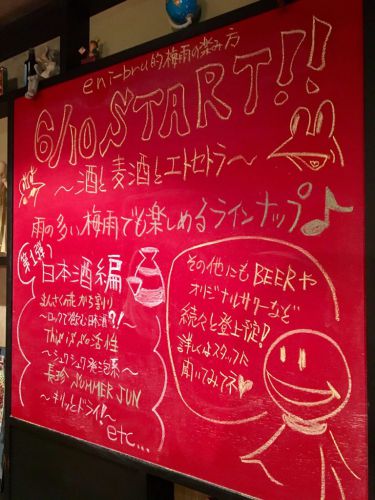 eni-bru的梅雨の楽み方
6/10 START!!
～酒と麦酒とエトセトラ～
雨の多い梅雨でも楽しめるラインナップ♪
第1弾
日本酒編
から割り
～ロックで飲む日本酒?!～
This is 活性
～シュワシュワ発泡系～
長珍 SUMMER JUN
～キリッとドライ!～
etc...
その他にもBEERや
オリジナルサワーなど
続々と登上予定!
詳しくはスタッフに
聞いてみてネ♥